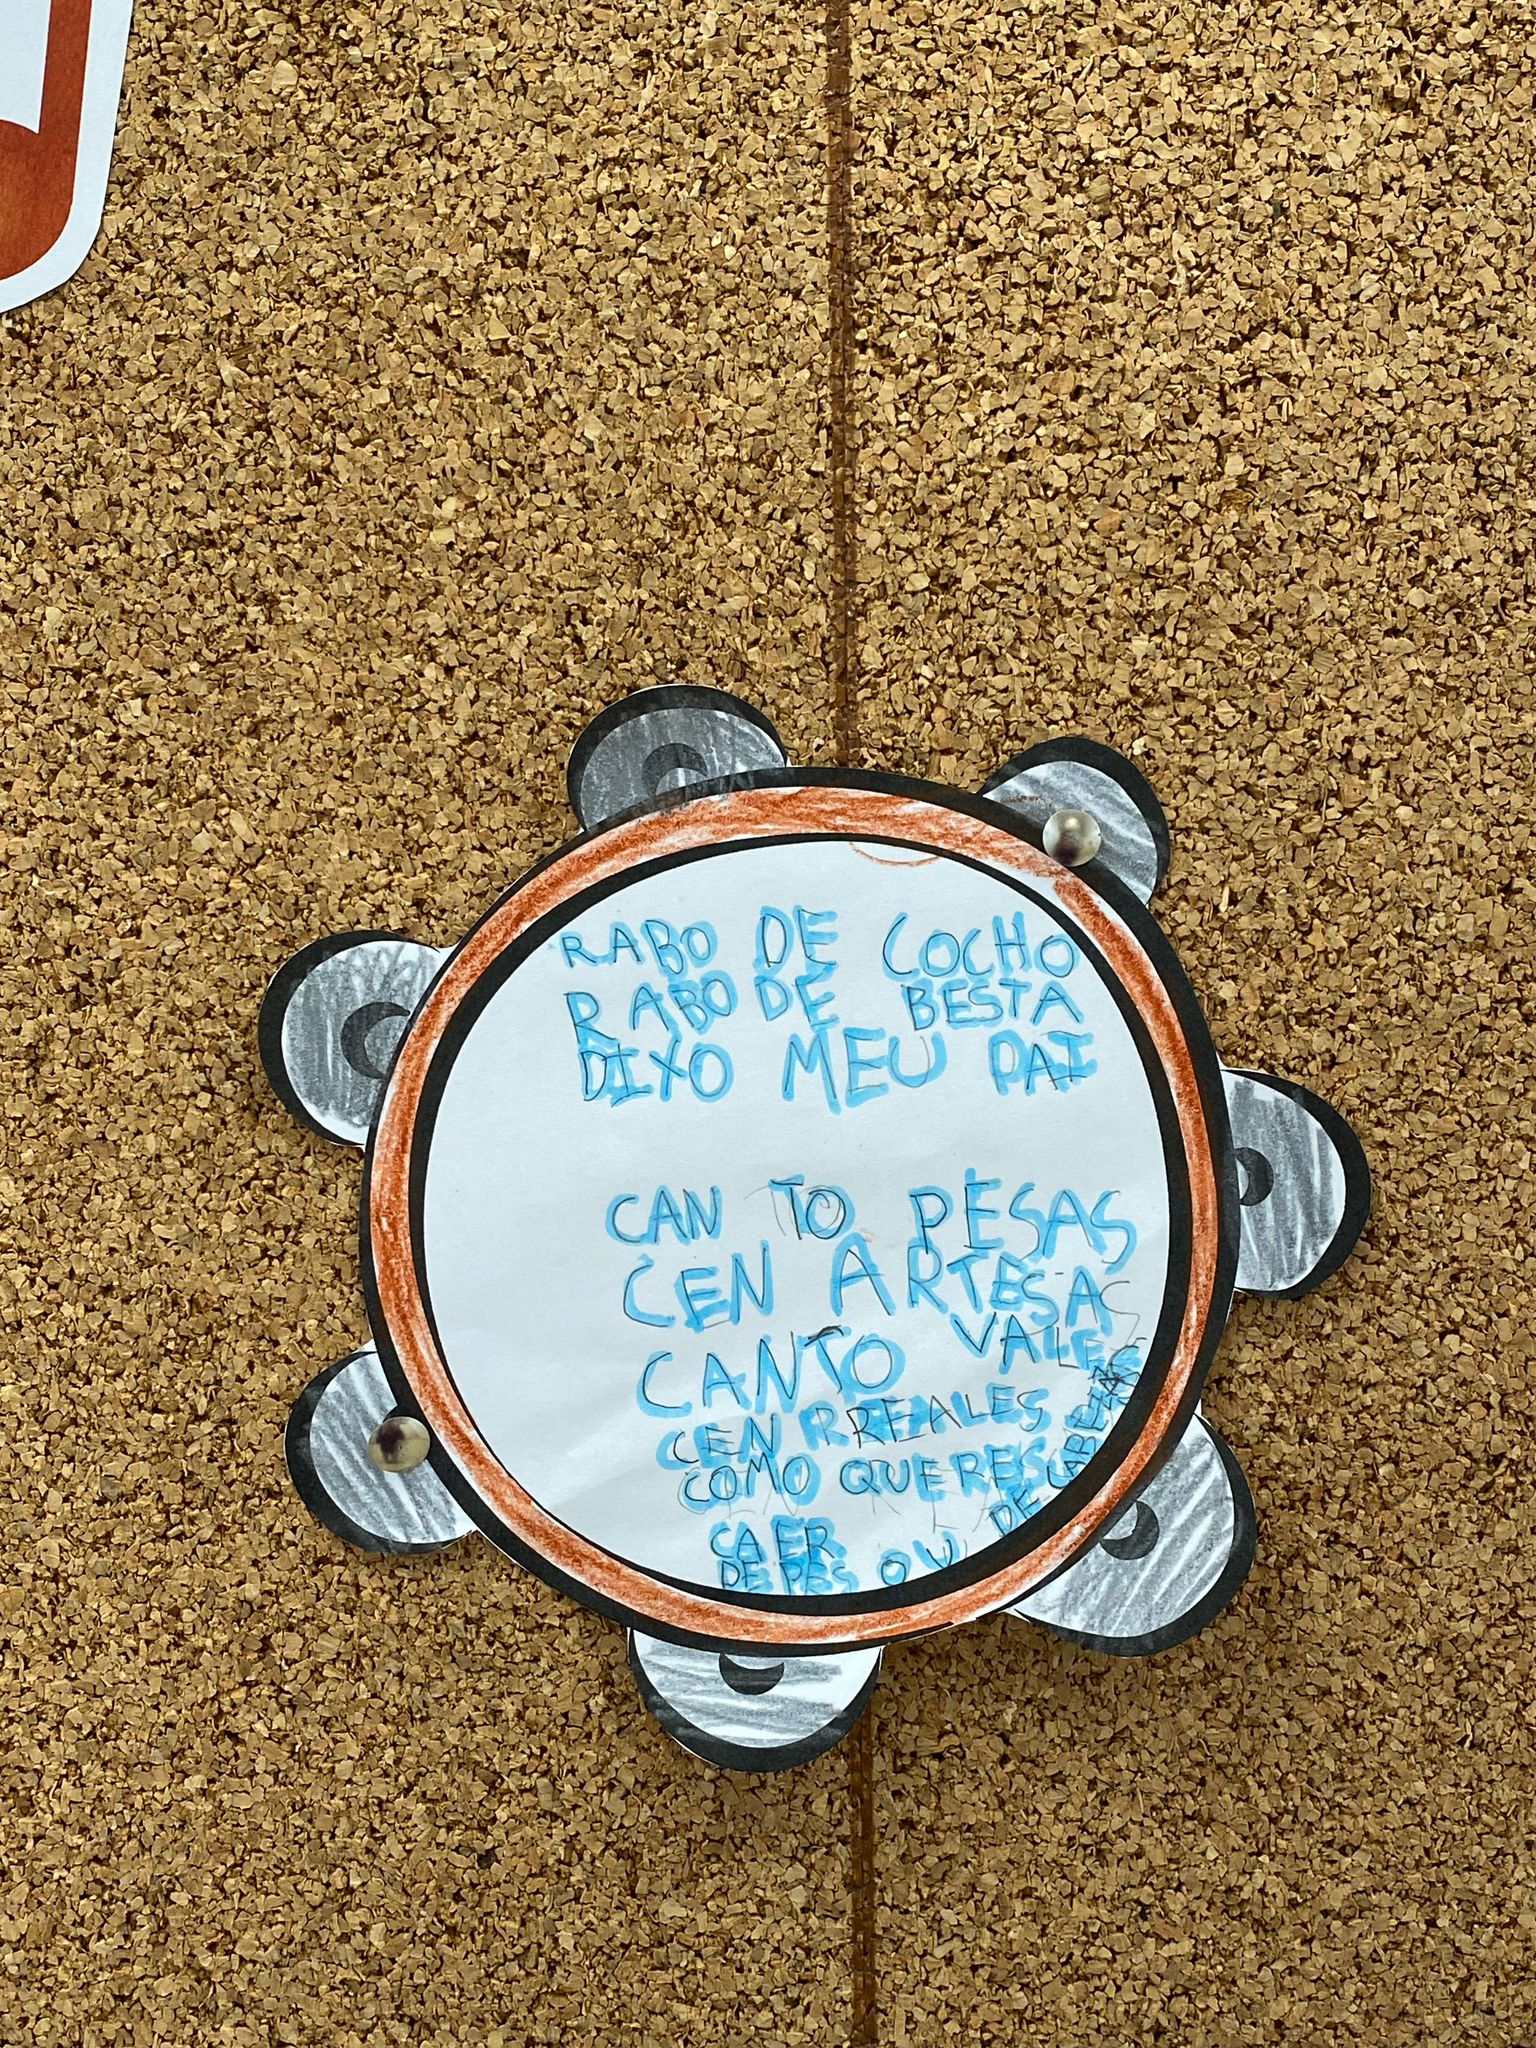 RABO DE COCHO
RABO DE BESTA
DIXO MEU PAI
CAN TO PESAS
CEN ARTESAS
CANTO VALES
CEN RREALES
COMO QUERES
CAER
DE PES OU DE CABEZA